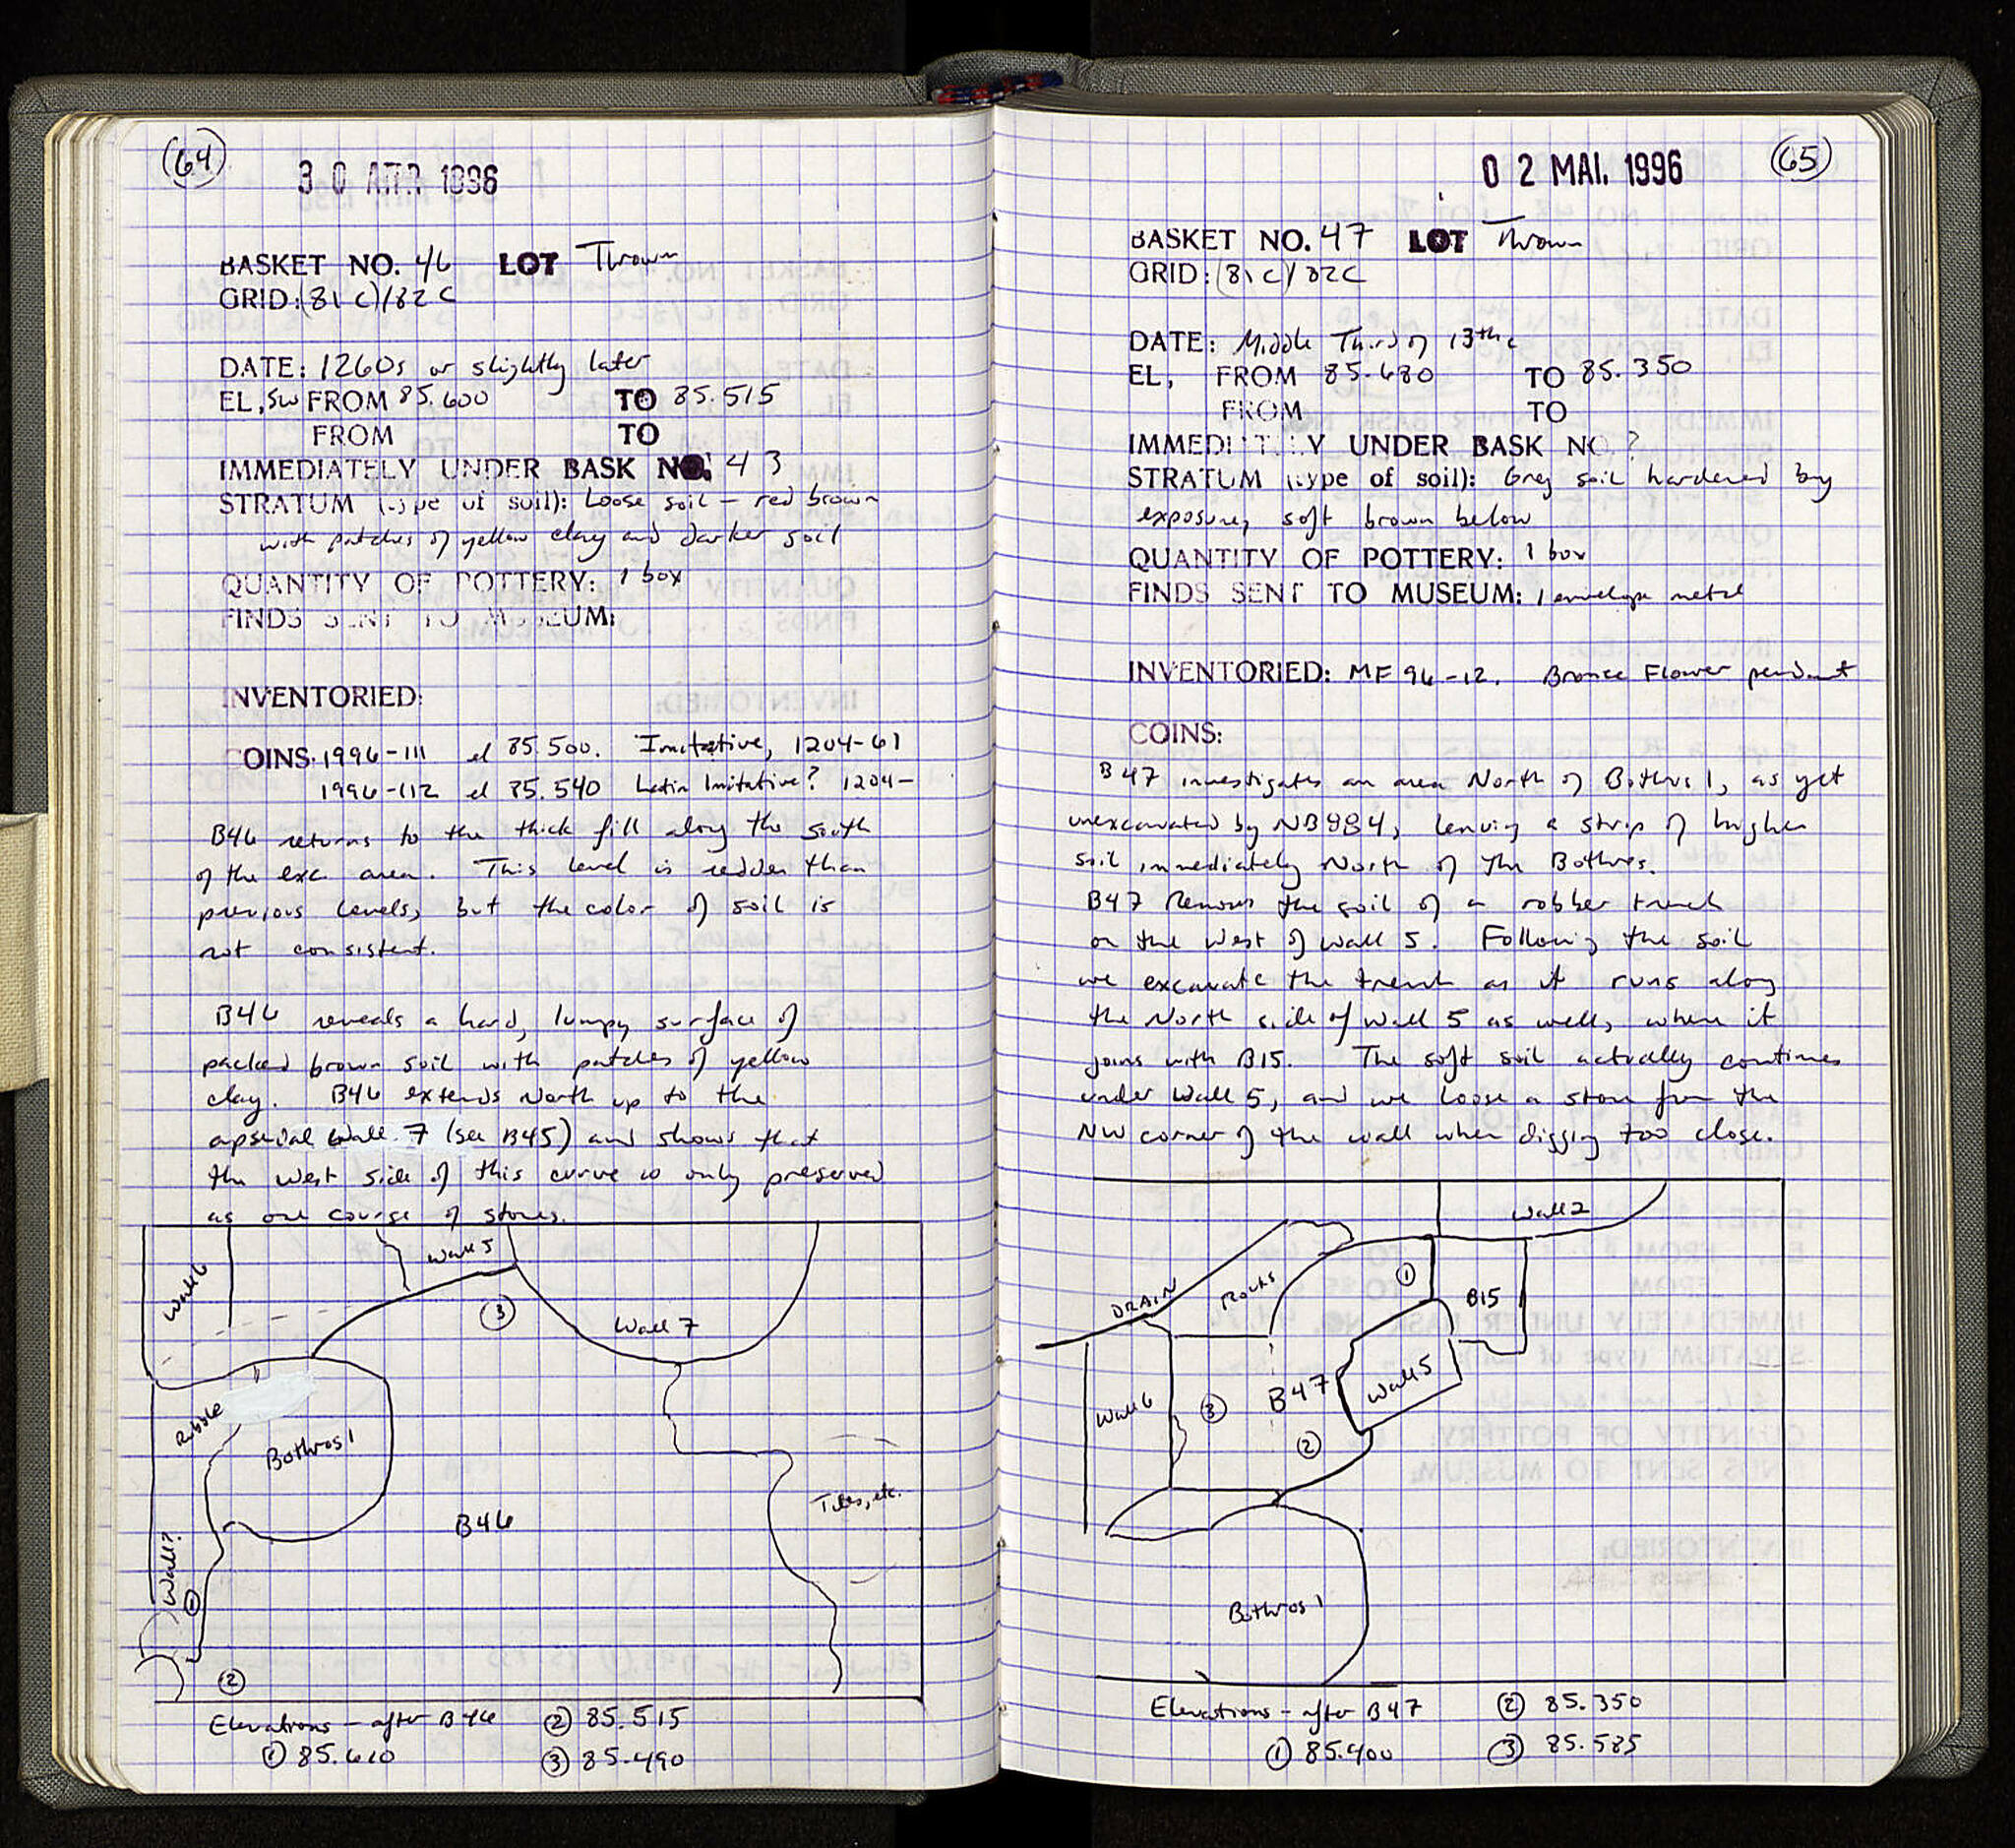 (64)
30 ΑΠΡ 1996
BASKET NO. 46 LOT Thrown
GRID: (81C)/82C
DATE: 1260s or slightly later
EL, SW FROM 85.600 TO 85.515
FROM TO
IMMEDIATELY UNDER BASK NO. 43
STRATUM (type of soil): Loose soil – red brown
with patches of yellow clay and darker soil
QUANTITY OF POTTERY: 1 box
FINDS SENT TO MUSEUM:
INVENTORIED:
COINS: 1996-111 el 85.500. Imitative, 1204-61
1996-112 el 85.540 Latin Imitative? 1204-
B46 returns to the thick fill along the south
of the exc area. This level is redder than
previous levels, but the color of soil is
not consistent.
B46 reveals a hard, lumpy surface of
packed brown soil with patches of yellow
clay. B46 extends North up to the
apsidal Wall 7 (see B45) and shows that
the west side of this curve is only preserved
as one course of stones.
Wall 6
Wall 5
③
Wall 7
Rubble
Bothros 1
B46
Tiles, etc.
Wall?
①
②
Elevations – after B46 ② 85.515
① 85.610 ③ 85.490
(65)
02 MAI. 1996
BASKET NO. 47 LOT Thrown
GRID: (81C)/82C
DATE: Middle Third of 13th c
EL, FROM 85.680 TO 85.350
FROM TO
IMMEDIATELY UNDER BASK NO ?
STRATUM (type of soil): Grey soil hardened by
exposure, soft brown below
QUANTITY OF POTTERY: 1 box
FINDS SENT TO MUSEUM: 1 envelope metal
INVENTORIED: MF 96-12. Bronze Flower pendant
COINS:
B47 investigates an area North of Bothros 1, as yet
unexcavated by NB984, leaving a strip of higher
soil immediately North of the Bothros.
B47 Removes the soil of a robber trench
on the West of Wall 5. Following the soil
we excavate the trench as it runs along
the North side of Wall 5 as well, where it
joins with B15. The soft soil actually continues
under Wall 5, and we loose a stone from the
NW corner of the wall when digging too close.
Wall 2
DRAIN
Rocks
①
B15
Wall 6
③
B47
Wall 5
②
Bothros 1
Elevations – after B47 ② 85.350
① 85.400 ③ 85.585